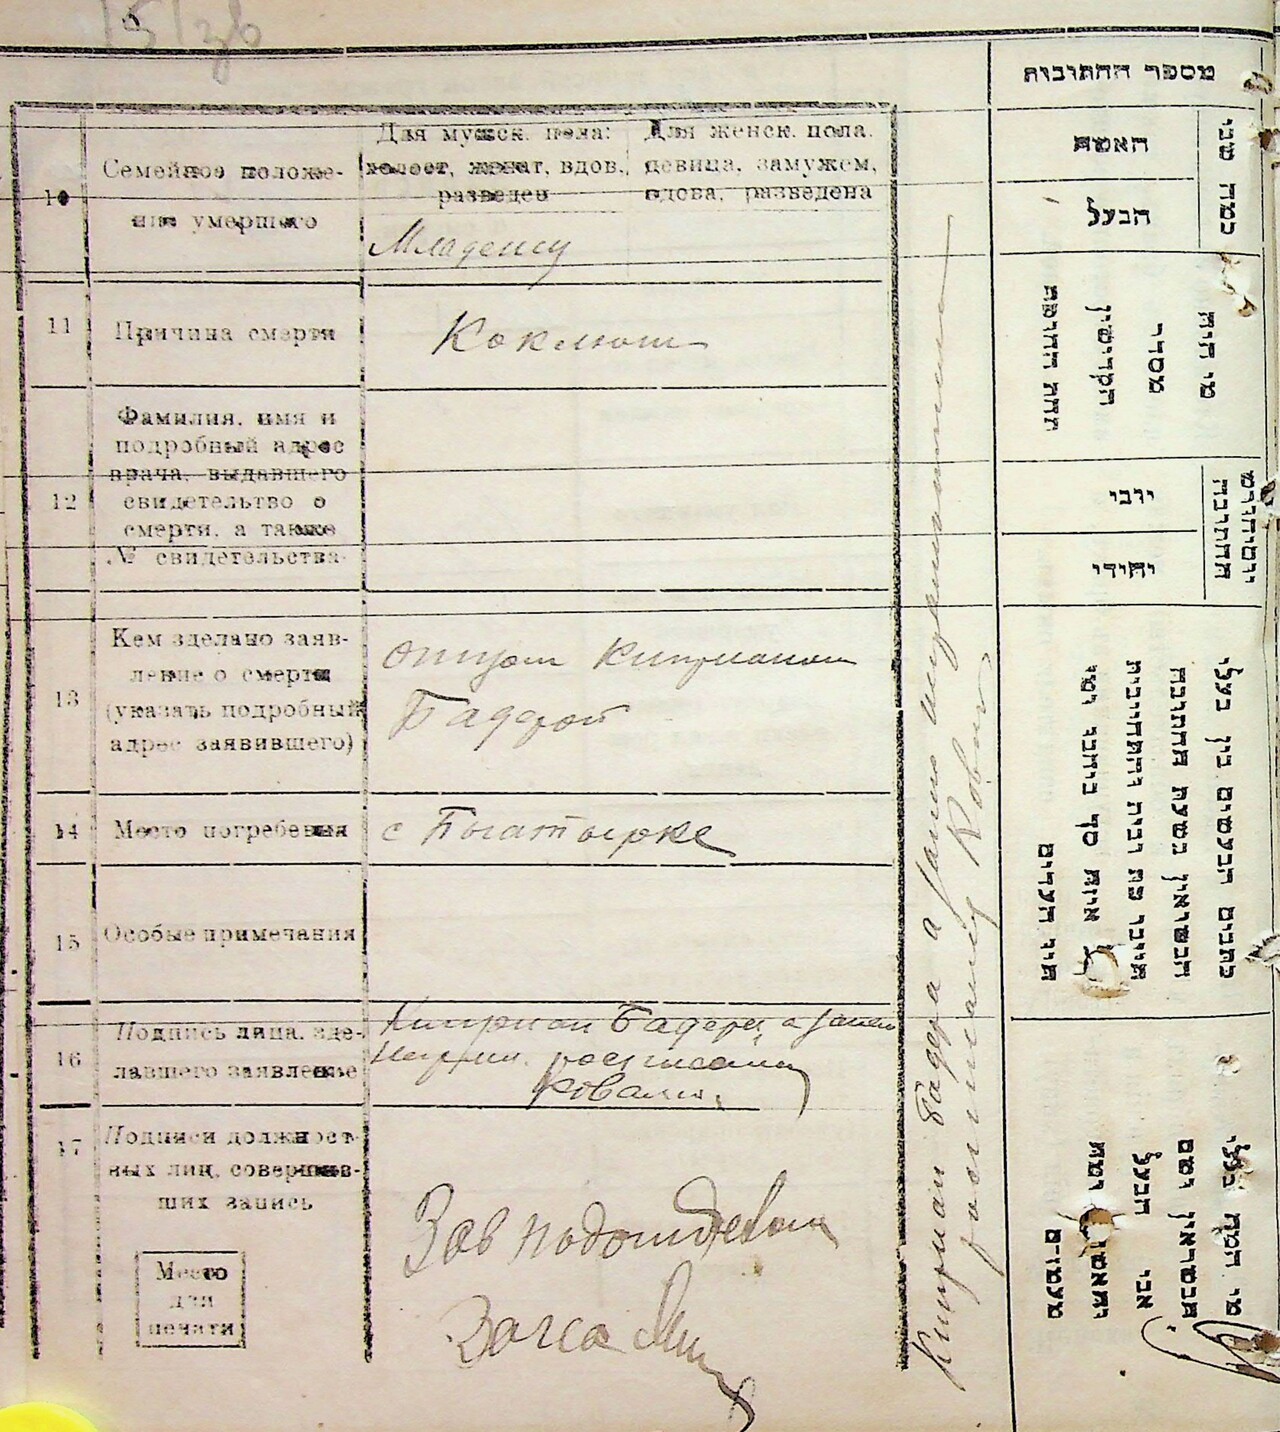 10
Семейное положе-
ние умершего
Для мужск. пола:
холост, женат, вдов.,
разведен
Для женск. пола.
девица, замужем,
вдова, разведена
Младенец
11
Причина смерти
Коклюш
12
Фамилия, имя и
подробный адрес
врача, выдавшего
свидетельство о
смерти, а также
№ свидетельства
13
Кем зделано заяв-
ление о смерти
(указать подробный
адрес заявившего)
отцом Киприаном
Бадерой
14
Место погребения
с Богатырке
15
Особые примечания
16
Подпись лица, зде-
лавшего заявление
Киприан Бадера, а за него
неграм. росписался
Коваль
17
Подписи должност-
ных лиц, соверцив-
ших запись
Зав подотделом
Загса
Место
для
печати
Киприан Бадера а за него
росписался
מספר הכתובות
כמה שני
האשה
הבעל
מי היה
מסדר
הקדושין
תחת החופה
יובי
יחידי
כתבים הנעשים בין בעלי
הנשואין בשעת החתונה
סך
העדים
מי המה בעלי
הנשואין ושם
אבי הבעל
והאשה
מעמדם